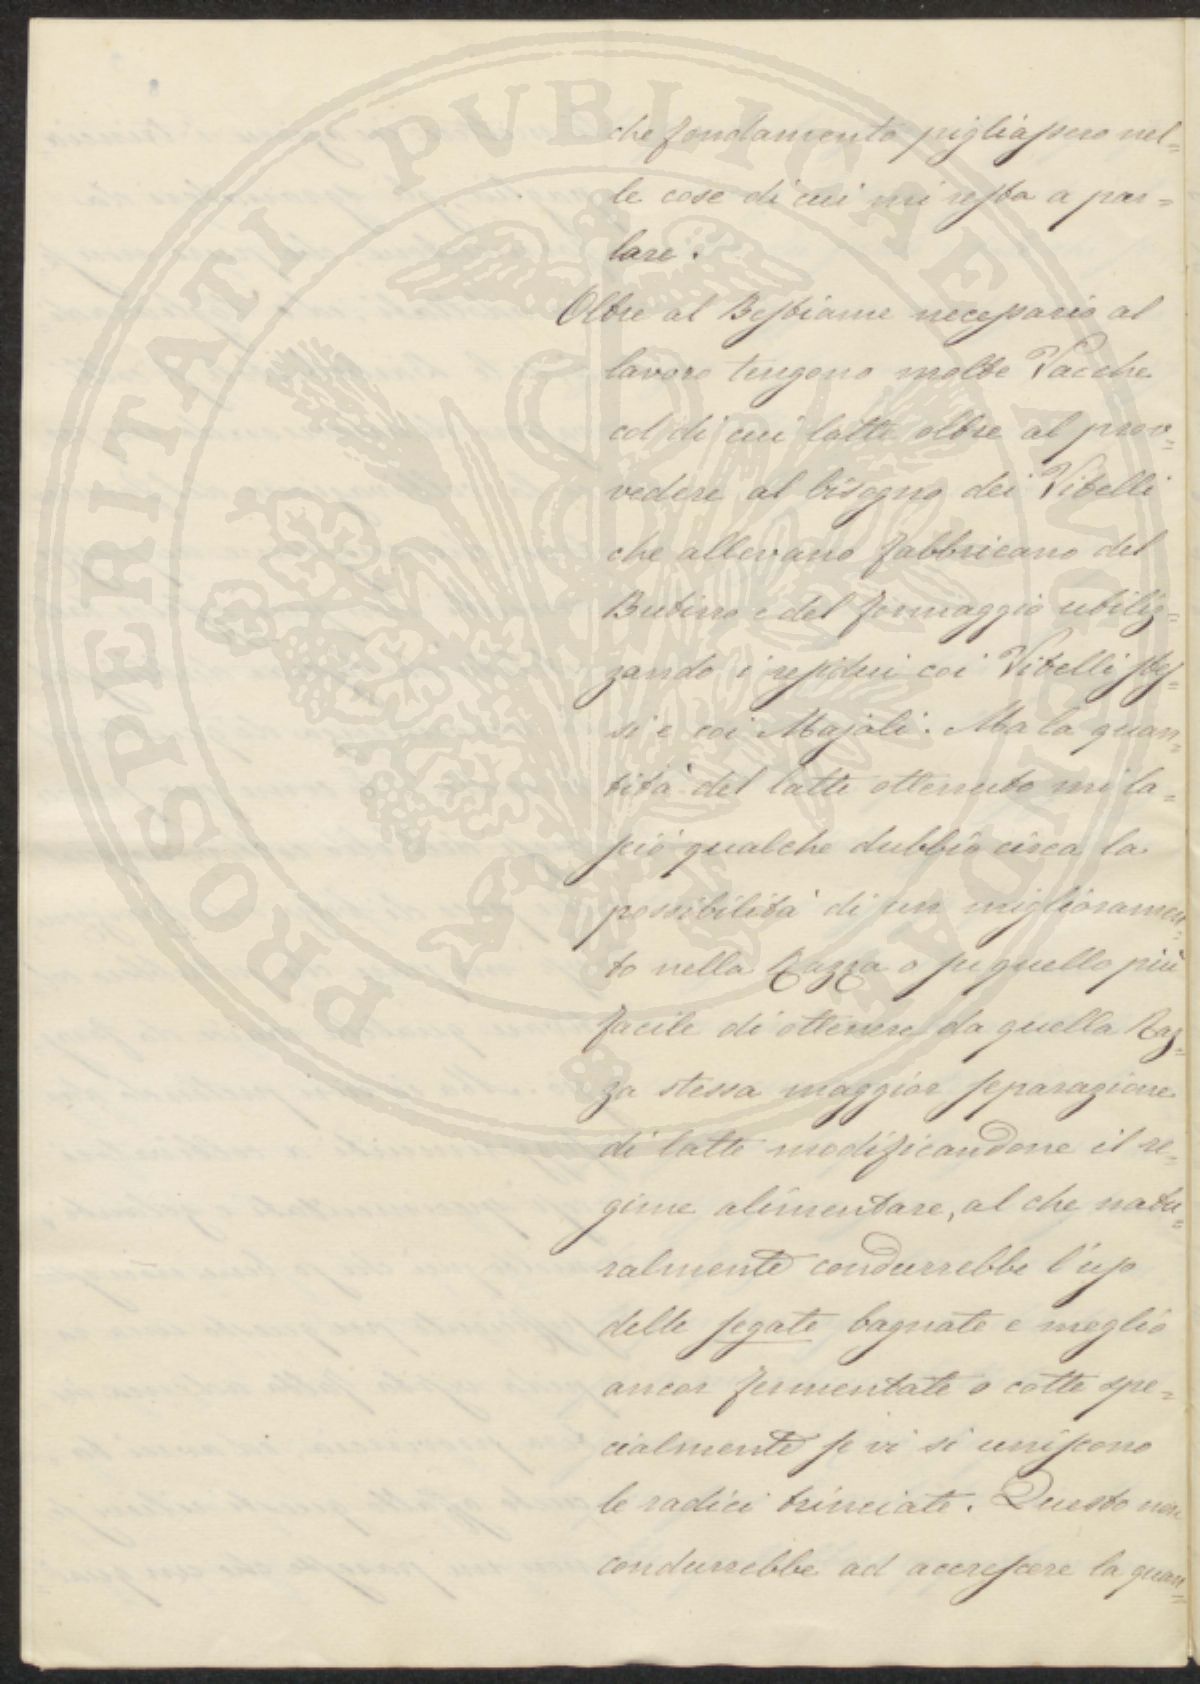 PROSPERITATI PUBLICAE AUGENDAE
che fondamento pigliassero nel=
le cose di cui mi resta a par=
lare.
Oltre al Bestiame necessario al
lavoro tengono molte Vacche
col di cui latte oltre al prov=
vedere al bisogno dei Vitelli
che allevano fabbricano del
Butirro e del formaggio utiliz=
zando i residui coi Vitelli stes=
si e coi Majali. Ma la quan=
tità del latte ottenuto mi la=
sciò qualche dubbio circa la
possibilità di un miglioramen=
to nella Razza o se quello più
facile di ottenere da quella Raz=
za stessa maggior separazione
di latte modificandone il re=
gime alimentare, al che natu=
ralmente condurrebbe l'uso
delle segate bagnate e meglio
ancor fermentate o cotte spe=
cialmente se vi si uniscono
le radici trinciate. Questo non
condurrebbe ad accrescere la quan=